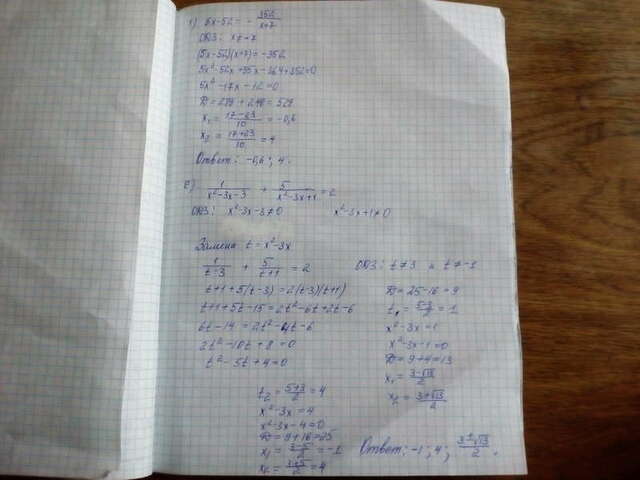 1) 5x-52 = - 352/x+7
ОДЗ: x ≠ -7
(5x-52)(x+7) = -352
5x²-52x+35x-364+352=0
5x²-17x-12=0
D = 289+240 = 529
x₁ = 17-23/10 = -0,6
x₂ = 17+23/10 = 4
Ответ: -0,6; 4.
2) 1/x²-3x-3 + 5/x²-3x+1 = 2
ОДЗ: x²-3x-3≠0 x²-3x+1≠0
Замена t = x²-3x
1/t-3 + 5/t+1 = 2
t+1+5(t-3) = 2(t-3)(t+1)
t+1+5t-15 = 2t²-6t+2t-6
6t-14 = 2t²-4t-6
2t²-10t+8=0
t²-5t+4=0
ОДЗ: t≠3 и t≠-1
D = 25-16 = 9
t₁ = 5-3/2 = 1
x²-3x=1
x²-3x-1=0
D = 9+4 = 13
x₁ = 3-√13/2
x₂ = 3+√13/2
t₂ = 5+3/2 = 4
x²-3x=4
x²-3x-4=0
D = 9+16=25
x₁ = 3-5/2 = -1
x₂ = 3+5/2 = 4
Ответ: -1; 4; 3±√13/2.